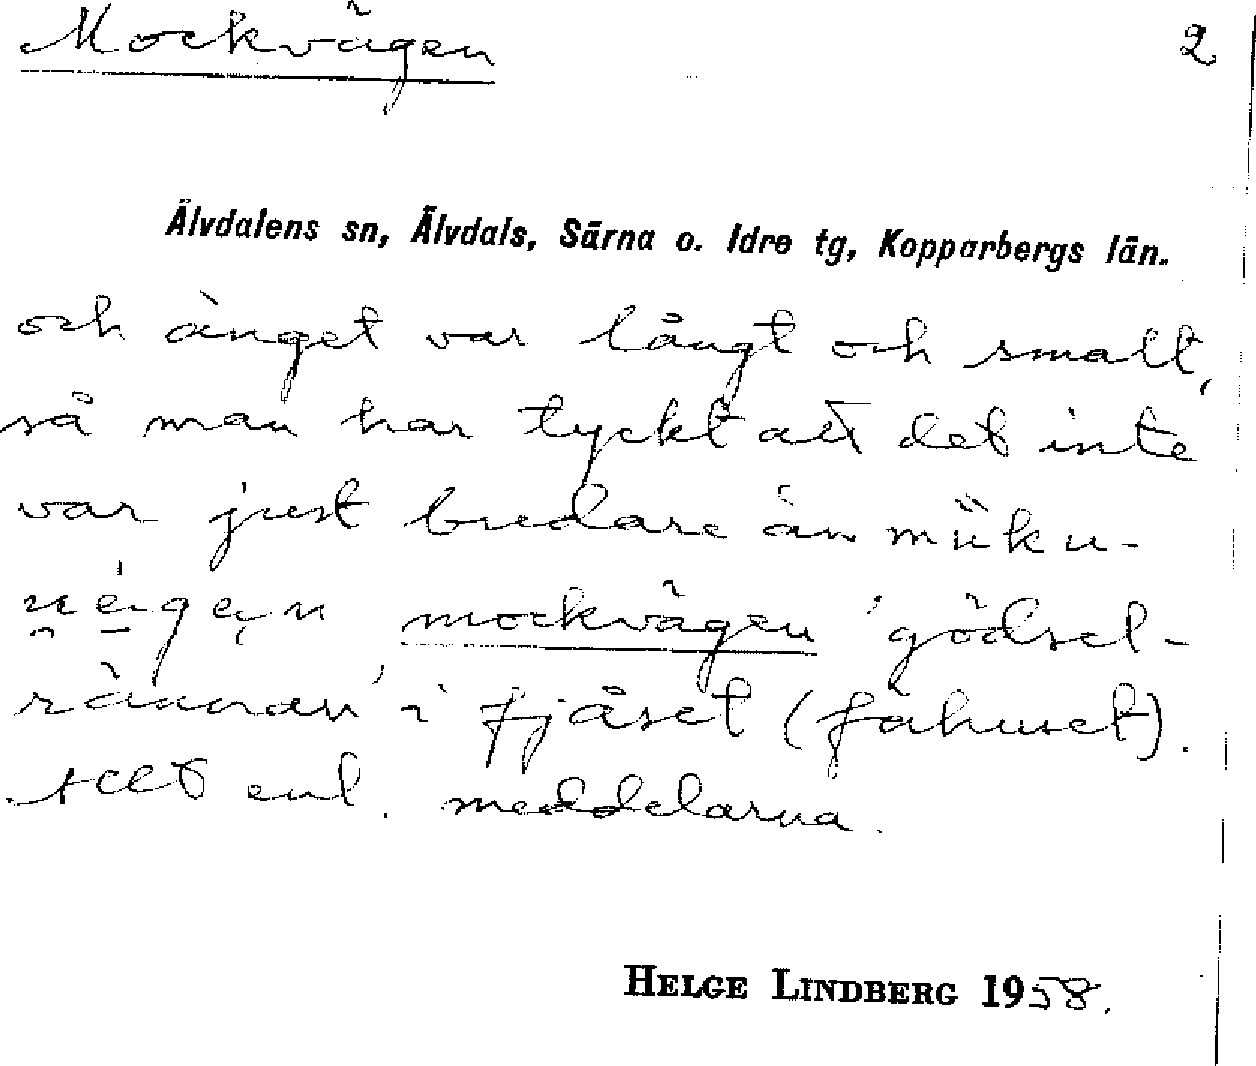 Mockvägen 2
Älvdalens sn, Älvdals, Särna o. Idre tg, Kopparbergs län.
och änget var långt och smalt,
så man har tyckt att det inte
var just bredare än müku-
mockvägen 'gödsel-
rännan' i fjåset (fähuset).
Allt enl. meddelarna.
HELGE LINDBERG 1958.